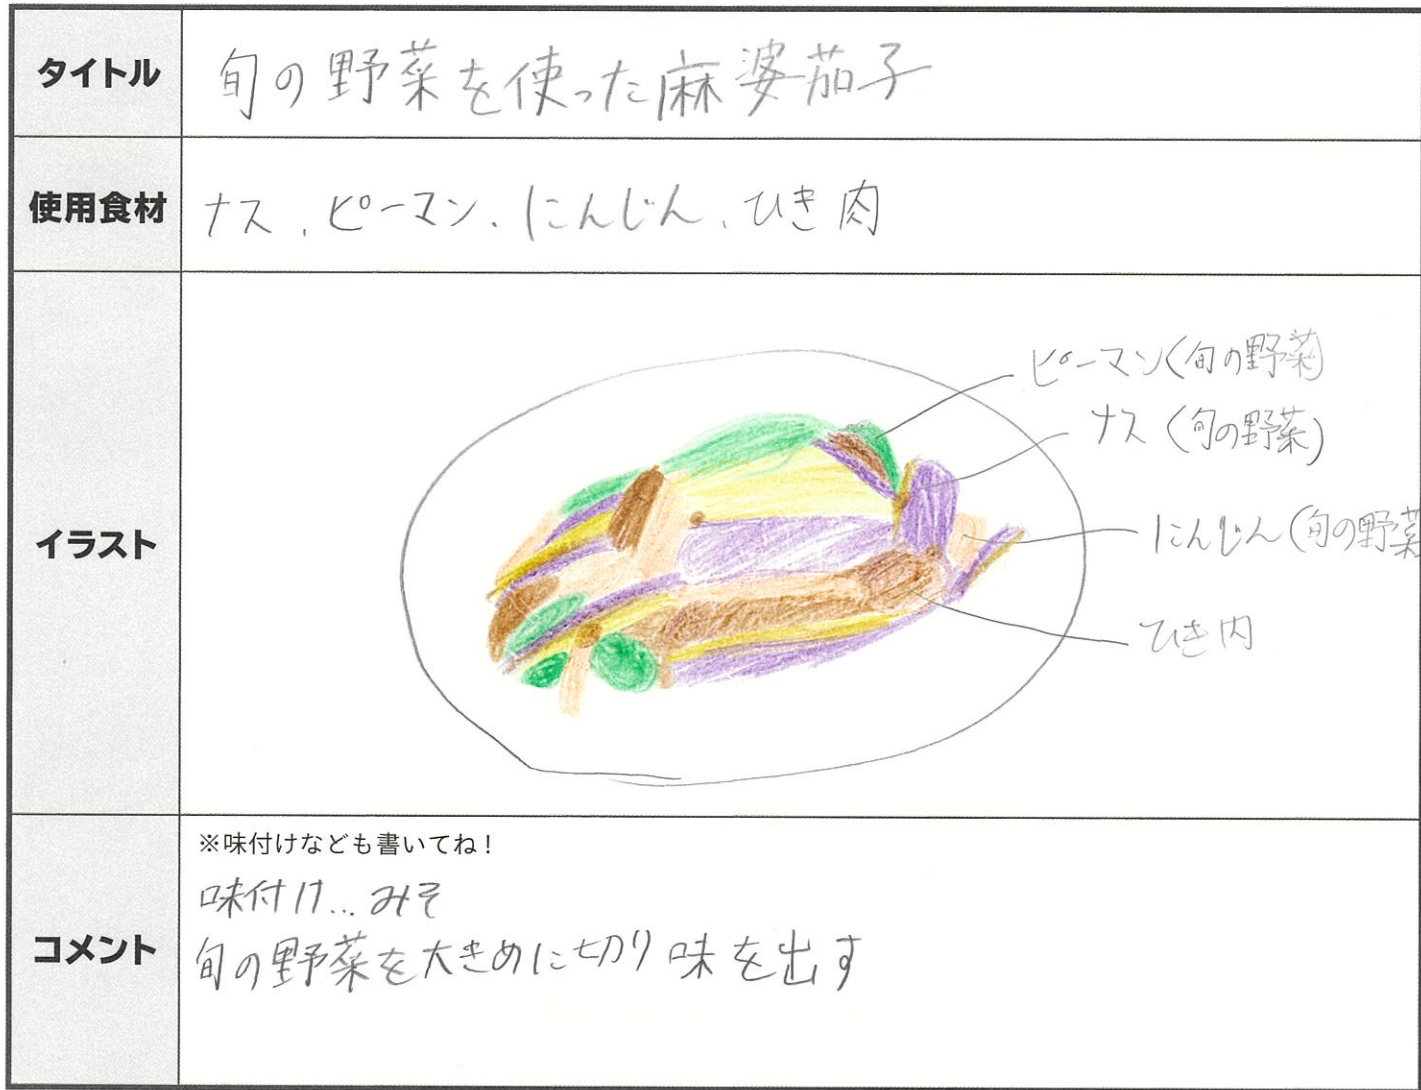 タイトル
旬の野菜を使った麻婆茄子
使用食材
ナス、ピーマン、にんじん、ひき肉
イラスト
ピーマン(旬の野菜)
ナス(旬の野菜)
にんじん(旬の野菜
ひき肉
コメント
※味付けなども書いてね!
味付け…みそ
旬の野菜を大きめに切り味を出す